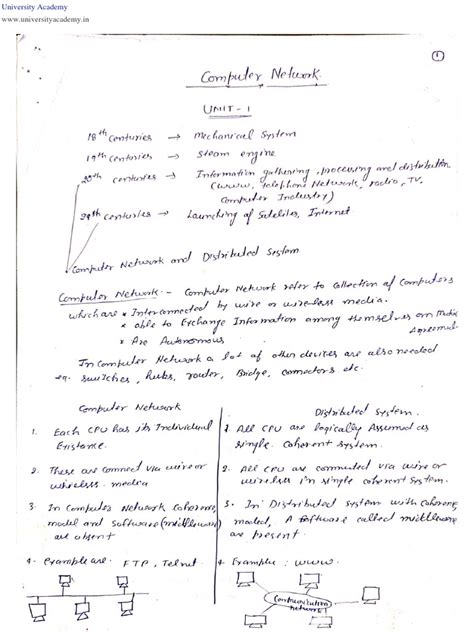 University Academy
www.universityacademy.in
1
Computer Network.
UNIT-1
18th Centuries → Mechanical System
19th Centuries → Steam engine
20th Centuries → Information gathering, processing and distribution
(www, telephone Network, radio, TV,
Computer Industry)
Centuries → Launching of Satelites, Internet
Computer Network and Distributed System
Computer Network :- Computer Network refer to Collection of Computers
which are * Interconnected by wire or wire-less media.
* able to Exchange Information among themselves on
* Are Autonomous
In Computer Network a lot of other devices are also needed
eg. switches, hubs, router, Bridge, connectors etc.
Computer Network
Distributed System.
1. Each CPU has its Individual
Existance.
1. All CPU are logically Assumed as
single Coherent system.
2. These are connect via wire or
wireless media
2. All CPU are connected via wire or
wireless in single coherent system.
3. In Computer Network Coherence,
model and Software (middleware)
are absent
3. In Distributed System with Coherence,
model, A software called middleware
are present.
4. Example are. FTP, Telnet
4. Example : www.
Communication
network